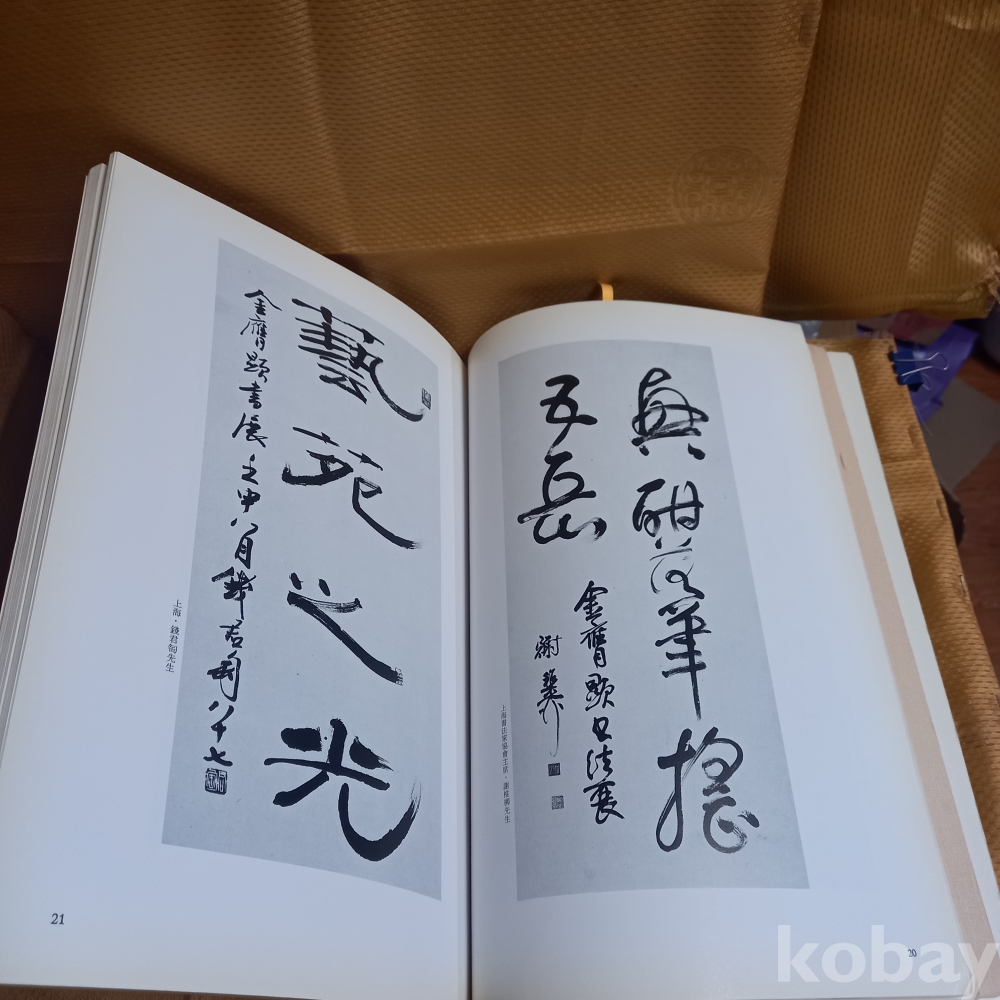 興酣落筆搖
五岳
金膺顯書法展
謝稚柳
上海書法家協會主席·謝稚柳先生
20
藝苑之光
金膺顯書展壬申八月錢君匋八十七
上海·錢君匋先生
21
kobay